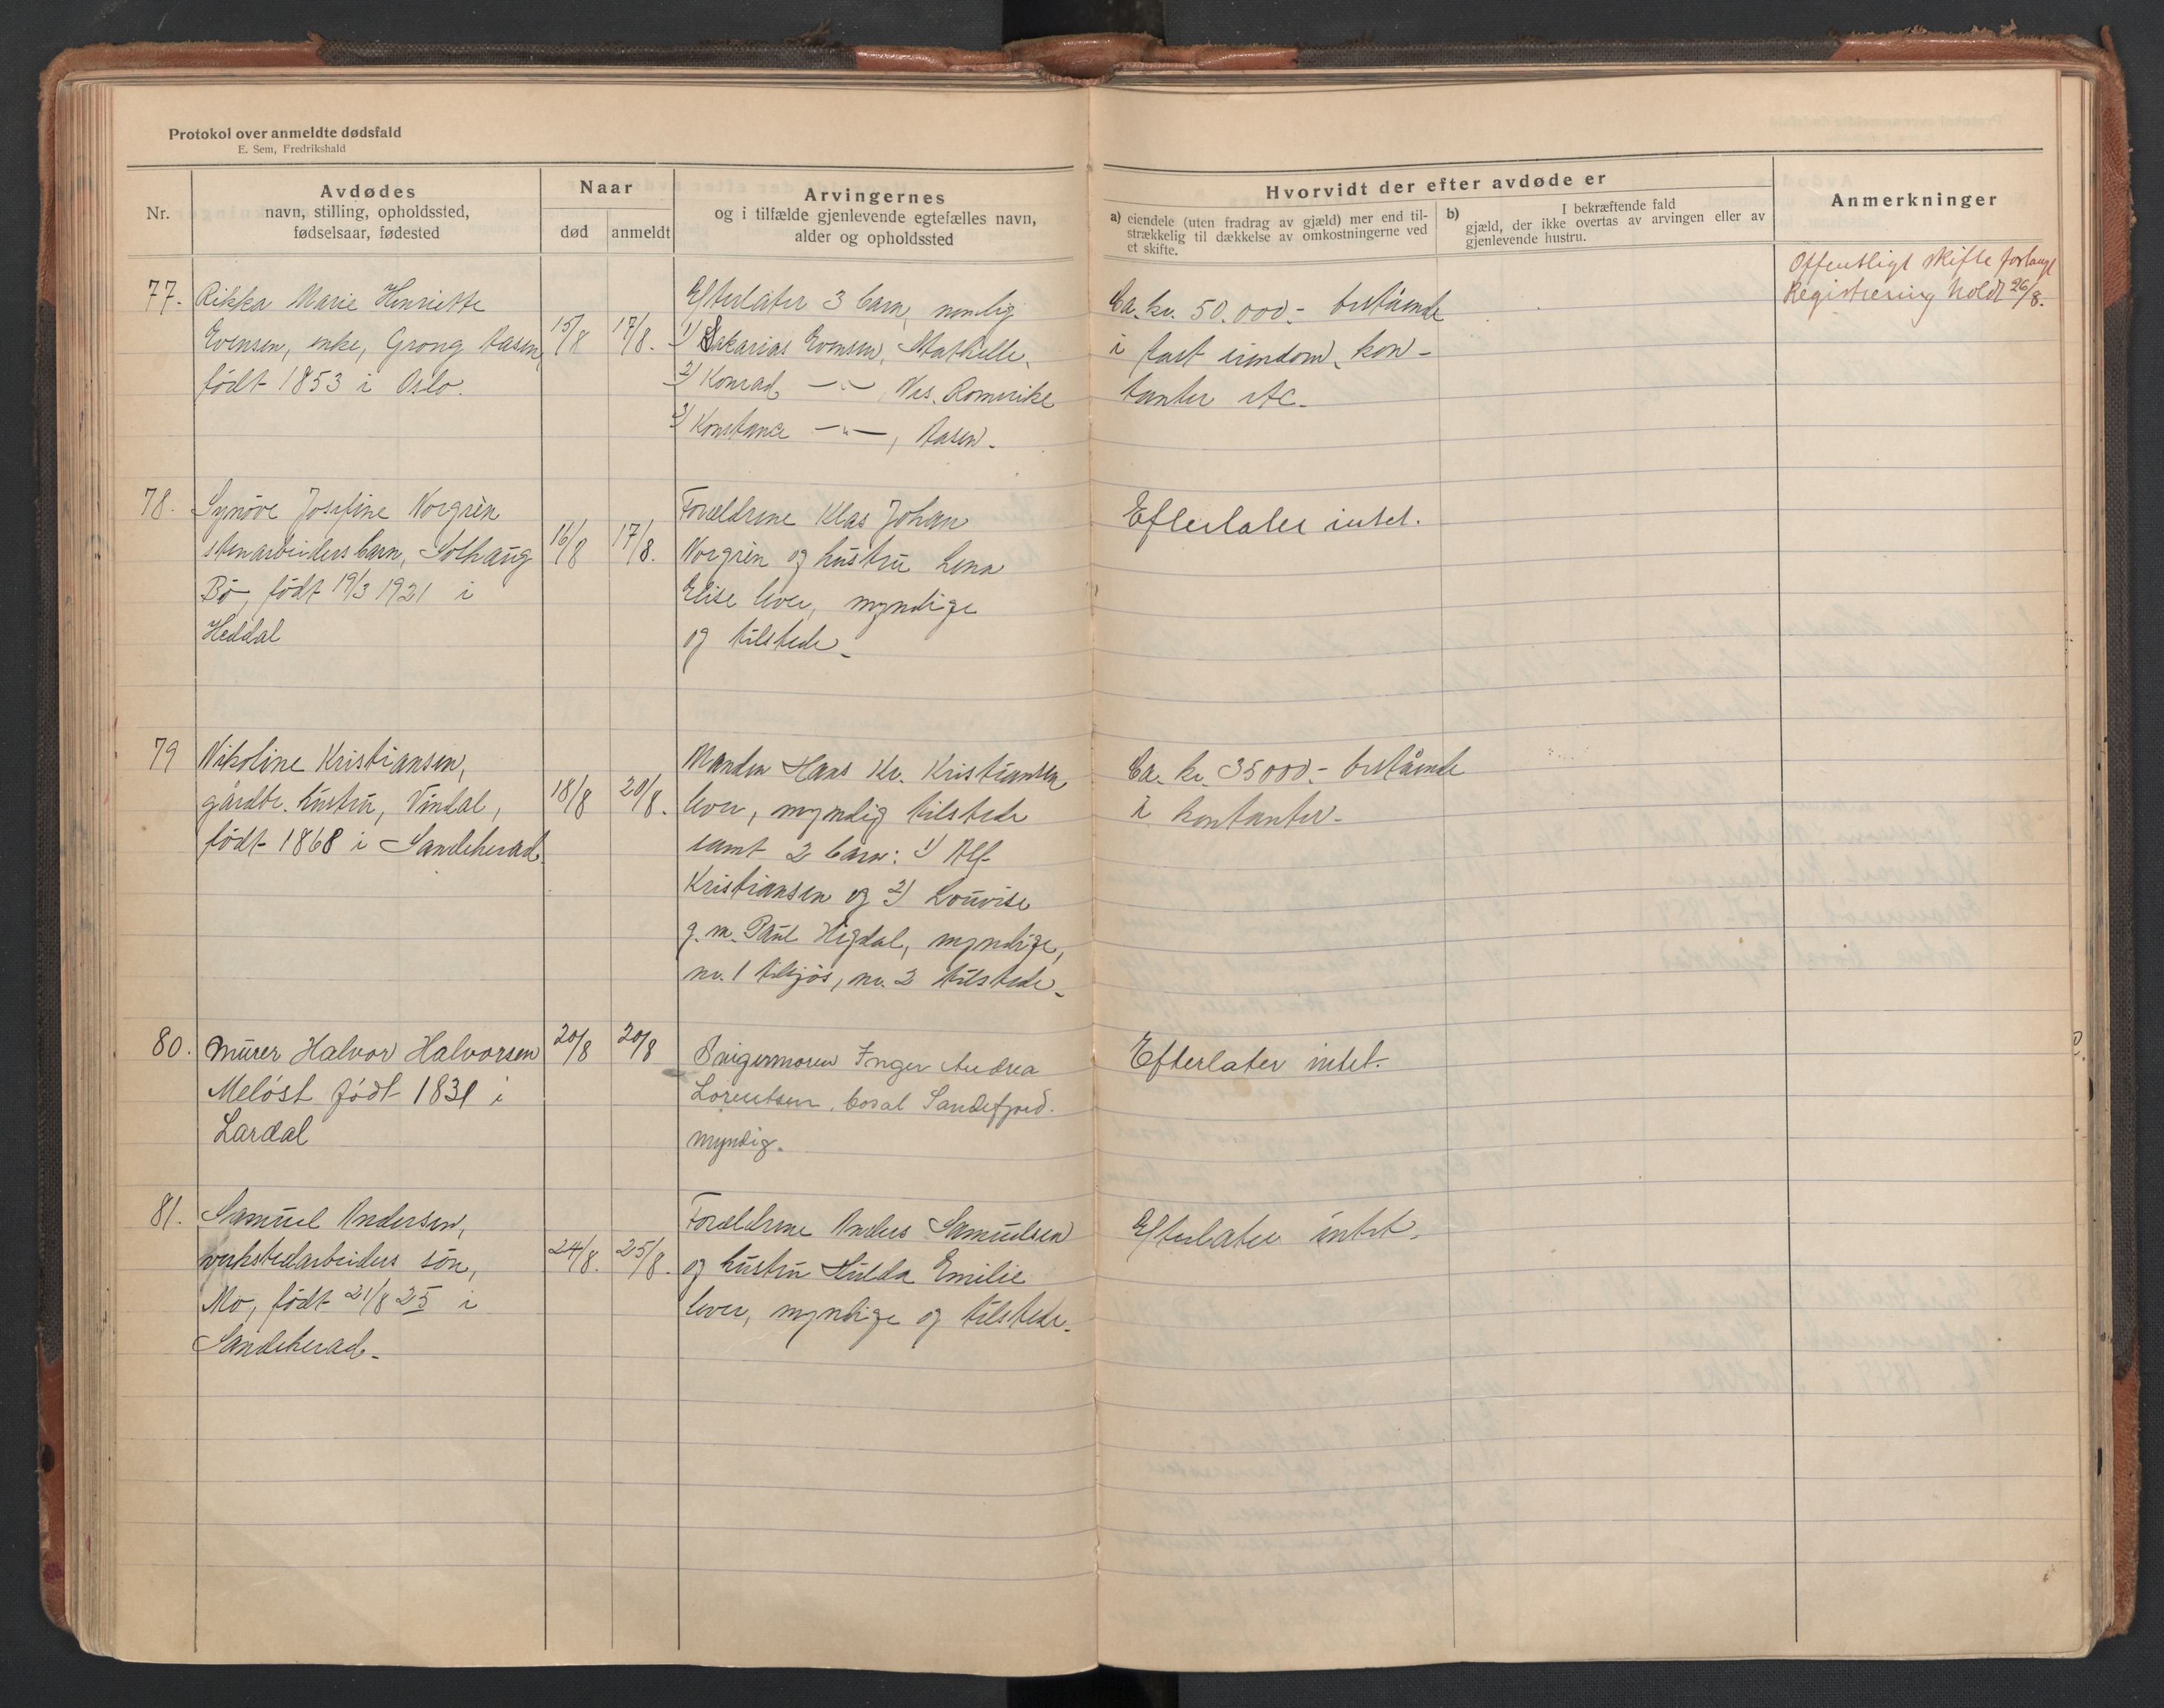 Protokol over anmeldte dødsfald
E. Sem, Fredrikshald
Nr.
Avdødes
navn, stilling, opholdssted,
fødselsaar, fødested
Naar
død
anmeldt
Arvingernes
og i tilfælde gjenlevende egtefælles navn,
alder og opholdssted
Hvorvidt der efter avdøde er
a) eiendele (uten fradrag av gjæld) mer end til-
strækkelig til dækkelse av omkostningerne ved
et skifte.
b) I bekræftende fald
gjæld, der ikke overtas av arvingen eller av
gjenlevende hustru.
Anmerkninger
77.
Rikka Marie Henriette
Evensen, enke, Grong Aasen,
født 1853 i Oslo.
15/8
17/8.
Efterlater 3 barn, nemlig
1) Sakarias Evensen,
2) Konrad —"—, Nes, Romerike
3) Konstance —"—, Aasen.
Ca. kr. 50.000.- bestående
i fast eiendom, kon-
tanter etc.
Offentligt skifte forlangt
Registrering holdt 26/8.
78.
Synöve Josefine Norgrèn
stenarbeiders barn, Solhaug
Bö, födt 19/3 1921 i
Heddal
16/8
17/8.
Forældrene Klas Johan
Norgrèn og hustru Lena
Elise lever, myndige
og tilstede.
Efterlater intet.
79
Nikoline Kristiansen,
gårdbr. hustru, Vindal,
födt 1868 i Sandeherad.
18/8
20/8.
Manden Hans Kr. Kristiansen
lever, myndig tilstede
samt 2 barn: 1) Alf
Kristiansen og 2) Louvise
g. m. Paul Hegdal, myndige,
nr. 1 tilsjös, nr. 2 tilstede.
Ca. kr. 35000.- bestående
i kontanter.
80.
Murer Halvor Halvorsen
Melöst födt 1831 i
Lardal
20/8
20/8
Svigermoren Inger Andrea
Lorentsen, bosat Sandefjord.
myndig.
Efterlater intet.
81.
Samuel Andersen,
verkstedarbeiders sön,
Mo, födt 21/8 25 i
Sandeherad.
24/8.
25/8.
Forældrene Anders Samuelsen
og hustru Hulda Emilie
lever, myndige og tilstede.
Efterlater intet.